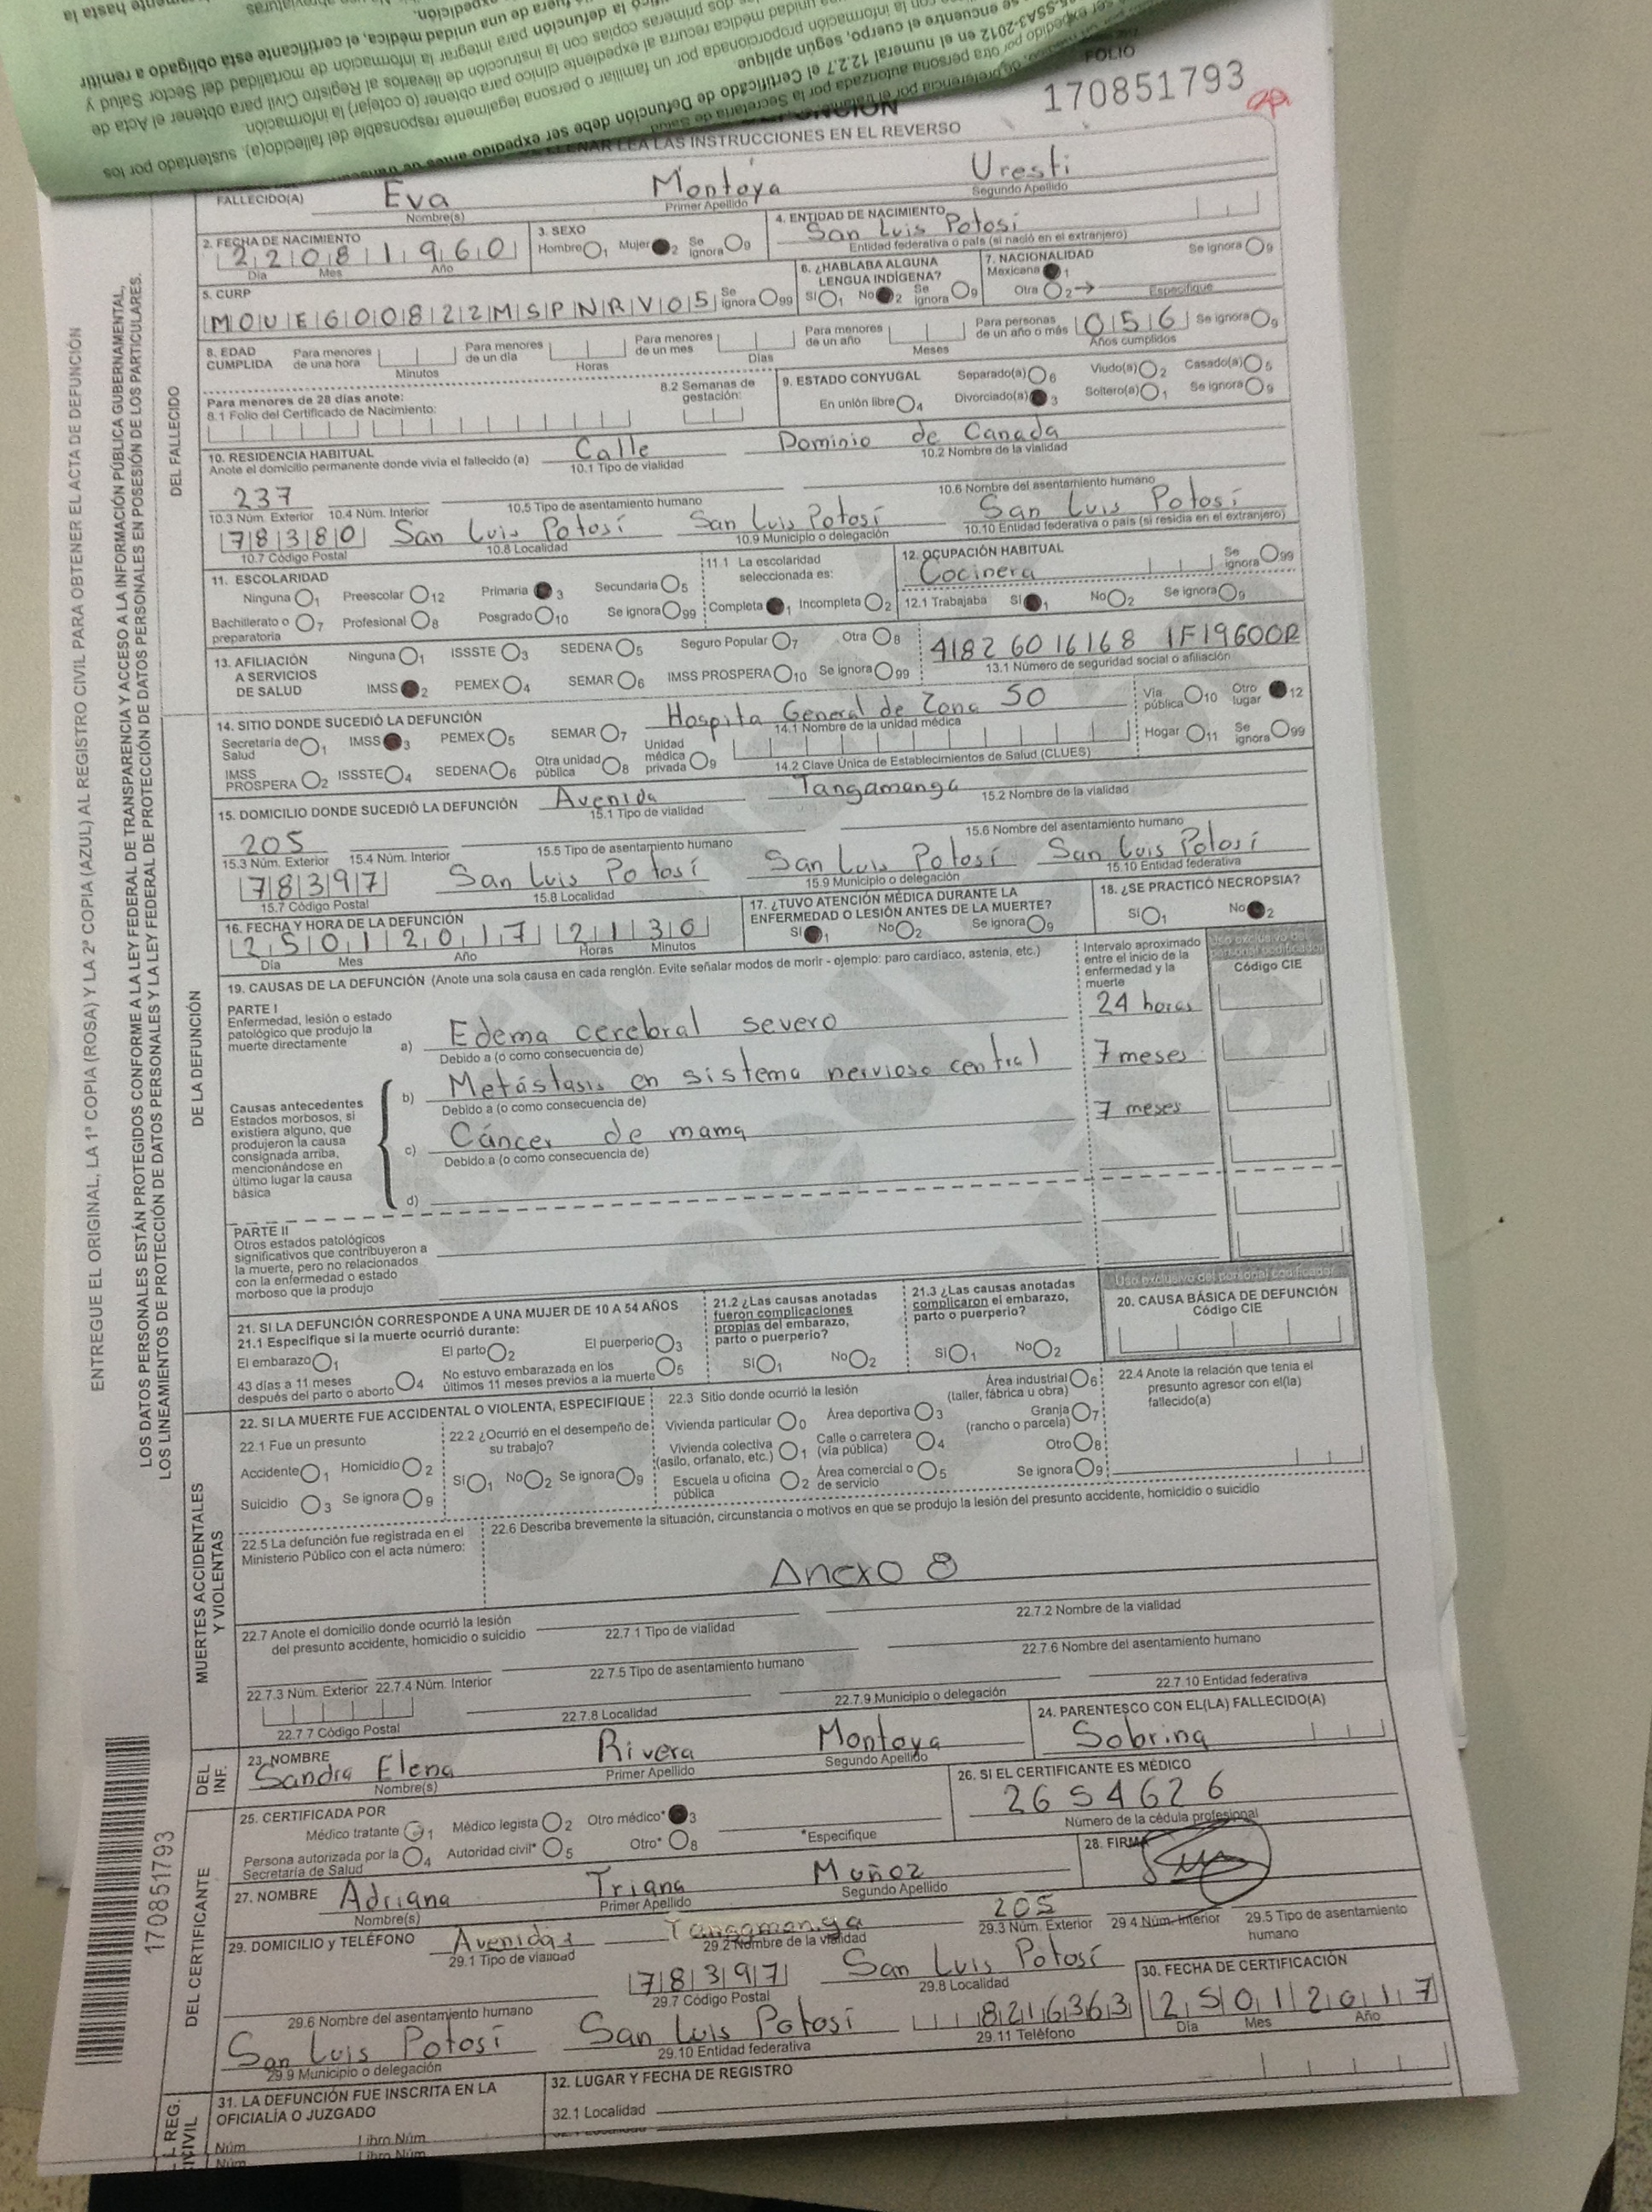 hasta la
el certificante está obligado a remitir
para integrar la información de mortalidad del Sector Salud y
dos primeras copias con la instrucción de llevarlos al Registro Civil para obtener el Acta de
unidad médica recurra al expediente clínico para obtener (o cotejar) la información
con la información proporcionada por un familiar o persona legalmente responsable del fallecido(a), sustentado por los
se encuentre el cuerpo, según aplique
SSA3-2012 en el numeral 12.2.7 el Certificado de Defunción debe ser expedido antes de
expedido por otra persona autorizada por la Secretaría de Salud
FOLIO
170851793
LLENAR LEA LAS INSTRUCCIONES EN EL REVERSO
FALLECIDO(A) Eva Montoya Uresti
Nombre(s) Primer Apellido Segundo Apellido
2. FECHA DE NACIMIENTO 22 08 1960
Día Mes Año
3. SEXO
Hombre 1 Mujer 2 Se ignora 9
4. ENTIDAD DE NACIMIENTO
San Luis Potosí
Entidad federativa o país (si nació en el extranjero)
5. CURP
MOUE600822MSPNRV05 Se ignora 99
6. ¿HABLABA ALGUNA LENGUA INDÍGENA?
Sí 1 No 2 Se ignora 9
7. NACIONALIDAD Se ignora 9
Mexicana 1
Otra 2 → Especifique
8. EDAD CUMPLIDA
Para menores de una hora Minutos
Para menores de un día Horas
Para menores de un mes Días
Para menores de un año Meses
Para personas de un año o más 056 Años cumplidos Se ignora 9
Para menores de 28 días anote:
8.1 Folio del Certificado de Nacimiento:
8.2 Semanas de gestación:
9. ESTADO CONYUGAL Separado(a) 6 Viudo(a) 2 Casado(a) 5
En unión libre 4 Divorciado(a) 3 Soltero(a) 1 Se ignora 9
10. RESIDENCIA HABITUAL
Anote el domicilio permanente donde vivía el fallecido (a) Calle Dominio de Canada
10.1 Tipo de vialidad 10.2 Nombre de la vialidad
237
10.3 Núm. Exterior 10.4 Núm. Interior 10.5 Tipo de asentamiento humano 10.6 Nombre del asentamiento humano
78380 San Luis Potosí San Luis Potosí San Luis Potosí
10.7 Código Postal 10.8 Localidad 10.9 Municipio o delegación 10.10 Entidad federativa o país (si residía en el extranjero)
11. ESCOLARIDAD
Ninguna 1 Preescolar 12 Primaria 3 Secundaria 5
Bachillerato o preparatoria 7 Profesional 8 Posgrado 10 Se ignora 99
11.1 La escolaridad seleccionada es:
Completa 1 Incompleta 2
12. OCUPACIÓN HABITUAL
Cocinera Se ignora 99
12.1 Trabajaba Sí 1 No 2 Se ignora 9
13. AFILIACIÓN A SERVICIOS DE SALUD
Ninguna 1 ISSSTE 3 SEDENA 5 Seguro Popular 7 Otra 8
IMSS 2 PEMEX 4 SEMAR 6 IMSS PROSPERA 10 Se ignora 99
4182 6016168 1F1960OR
13.1 Número de seguridad social o afiliación
14. SITIO DONDE SUCEDIÓ LA DEFUNCIÓN Hospita General de Zona 50
14.1 Nombre de la unidad médica
Secretaría de Salud 1 IMSS 3 PEMEX 5 SEMAR 7 Unidad médica privada 9
IMSS PROSPERA 2 ISSSTE 4 SEDENA 6 Otra unidad pública 8
14.2 Clave Única de Establecimientos de Salud (CLUES)
Vía pública 10 Otro lugar 12
Hogar 11 Se ignora 99
15. DOMICILIO DONDE SUCEDIÓ LA DEFUNCIÓN Avenida Tangamanga
15.1 Tipo de vialidad 15.2 Nombre de la vialidad
205
15.3 Núm. Exterior 15.4 Núm. Interior 15.5 Tipo de asentamiento humano 15.6 Nombre del asentamiento humano
78397 San Luis Potosí San Luis Potosí San Luis Potosí
15.7 Código Postal 15.8 Localidad 15.9 Municipio o delegación 15.10 Entidad federativa
16. FECHA Y HORA DE LA DEFUNCIÓN
25 01 2017 21 30
Día Mes Año Horas Minutos
17. ¿TUVO ATENCIÓN MÉDICA DURANTE LA ENFERMEDAD O LESIÓN ANTES DE LA MUERTE?
Sí 1 No 2 Se ignora 9
18. ¿SE PRACTICÓ NECROPSIA?
Sí 1 No 2
19. CAUSAS DE LA DEFUNCIÓN (Anote una sola causa en cada renglón. Evite señalar modos de morir - ejemplo: paro cardíaco, astenia, etc.)
Intervalo aproximado entre el inicio de la enfermedad y la muerte
Uso exclusivo del personal codificador
Código CIE
PARTE I
Enfermedad, lesión o estado patológico que produjo la muerte directamente
a) Edema cerebral severo 24 horas
Debido a (o como consecuencia de)
b) Metástasis en sistema nervioso central 7 meses
Debido a (o como consecuencia de)
c) Cáncer de mama 7 meses
Debido a (o como consecuencia de)
d)
Causas antecedentes
Estados morbosos, si existiera alguno, que produjeron la causa consignada arriba, mencionándose en último lugar la causa básica
PARTE II
Otros estados patológicos significativos que contribuyeron a la muerte, pero no relacionados con la enfermedad o estado morboso que la produjo
21. SI LA DEFUNCIÓN CORRESPONDE A UNA MUJER DE 10 A 54 AÑOS
21.1 Especifique si la muerte ocurrió durante:
El embarazo 1 El parto 2 El puerperio 3
43 días a 11 meses después del parto o aborto 4 No estuvo embarazada en los últimos 11 meses previos a la muerte 5
21.2 ¿Las causas anotadas fueron complicaciones propias del embarazo, parto o puerperio?
Sí 1 No 2
21.3 ¿Las causas anotadas complicaron el embarazo, parto o puerperio?
Sí 1 No 2
Uso exclusivo del personal codificador
20. CAUSA BÁSICA DE DEFUNCIÓN
Código CIE
22. SI LA MUERTE FUE ACCIDENTAL O VIOLENTA, ESPECIFIQUE
22.1 Fue un presunto
Accidente 1 Homicidio 2
Suicidio 3 Se ignora 9
22.2 ¿Ocurrió en el desempeño de su trabajo?
Sí 1 No 2 Se ignora 9
22.3 Sitio donde ocurrió la lesión
Vivienda particular 0 Área deportiva 3 Área industrial (taller, fábrica u obra) 6
Vivienda colectiva (asilo, orfanato, etc.) 1 Calle o carretera (vía pública) 4 Granja (rancho o parcela) 7
Escuela u oficina pública 2 Área comercial o de servicio 5 Otro 8
Se ignora 9
22.4 Anote la relación que tenía el presunto agresor con el(la) fallecido(a)
22.5 La defunción fue registrada en el Ministerio Público con el acta número:
22.6 Describa brevemente la situación, circunstancia o motivos en que se produjo la lesión del presunto accidente, homicidio o suicidio
Anexo 8
22.7 Anote el domicilio donde ocurrió la lesión del presunto accidente, homicidio o suicidio
22.7.1 Tipo de vialidad 22.7.2 Nombre de la vialidad
22.7.3 Núm. Exterior 22.7.4 Núm. Interior 22.7.5 Tipo de asentamiento humano 22.7.6 Nombre del asentamiento humano
22.7.7 Código Postal 22.7.8 Localidad 22.7.9 Municipio o delegación 22.7.10 Entidad federativa
23. NOMBRE
Sandra Elena Rivera Montoya
Nombre(s) Primer Apellido Segundo Apellido
24. PARENTESCO CON EL(LA) FALLECIDO(A)
Sobrina
25. CERTIFICADA POR
Médico tratante 1 Médico legista 2 Otro médico* 3
Persona autorizada por la Secretaría de Salud 4 Autoridad civil* 5 Otro* 8 *Especifique
26. SI EL CERTIFICANTE ES MÉDICO
2654626
Número de la cédula profesional
27. NOMBRE Adriana Triana Muñoz
Nombre(s) Primer Apellido Segundo Apellido
28. FIRMA
29. DOMICILIO y TELÉFONO Avenida Tangamanga 205
29.1 Tipo de vialidad 29.2 Nombre de la vialidad 29.3 Núm. Exterior 29.4 Núm. Interior 29.5 Tipo de asentamiento humano
78397 San Luis Potosí
29.6 Nombre del asentamiento humano 29.7 Código Postal 29.8 Localidad
San Luis Potosí San Luis Potosí 8216363
29.9 Municipio o delegación 29.10 Entidad federativa 29.11 Teléfono
30. FECHA DE CERTIFICACIÓN
25 01 2017
Día Mes Año
31. LA DEFUNCIÓN FUE INSCRITA EN LA OFICIALÍA O JUZGADO
Núm. Libro Núm.
Núm. Libro Núm.
32. LUGAR Y FECHA DE REGISTRO
32.1 Localidad
ENTREGUE EL ORIGINAL, LA 1ª COPIA (ROSA) Y LA 2ª COPIA (AZUL) AL REGISTRO CIVIL PARA OBTENER EL ACTA DE DEFUNCIÓN
LOS DATOS PERSONALES ESTÁN PROTEGIDOS CONFORME A LA LEY FEDERAL DE TRANSPARENCIA Y ACCESO A LA INFORMACIÓN PÚBLICA GUBERNAMENTAL,
LOS LINEAMIENTOS DE PROTECCIÓN DE DATOS PERSONALES Y LA LEY FEDERAL DE PROTECCIÓN DE DATOS PERSONALES EN POSESIÓN DE LOS PARTICULARES.
DEL FALLECIDO
DE LA DEFUNCIÓN
MUERTES ACCIDENTALES Y VIOLENTAS
DEL INF.
DEL CERTIFICANTE
REG. CIVIL
170851793